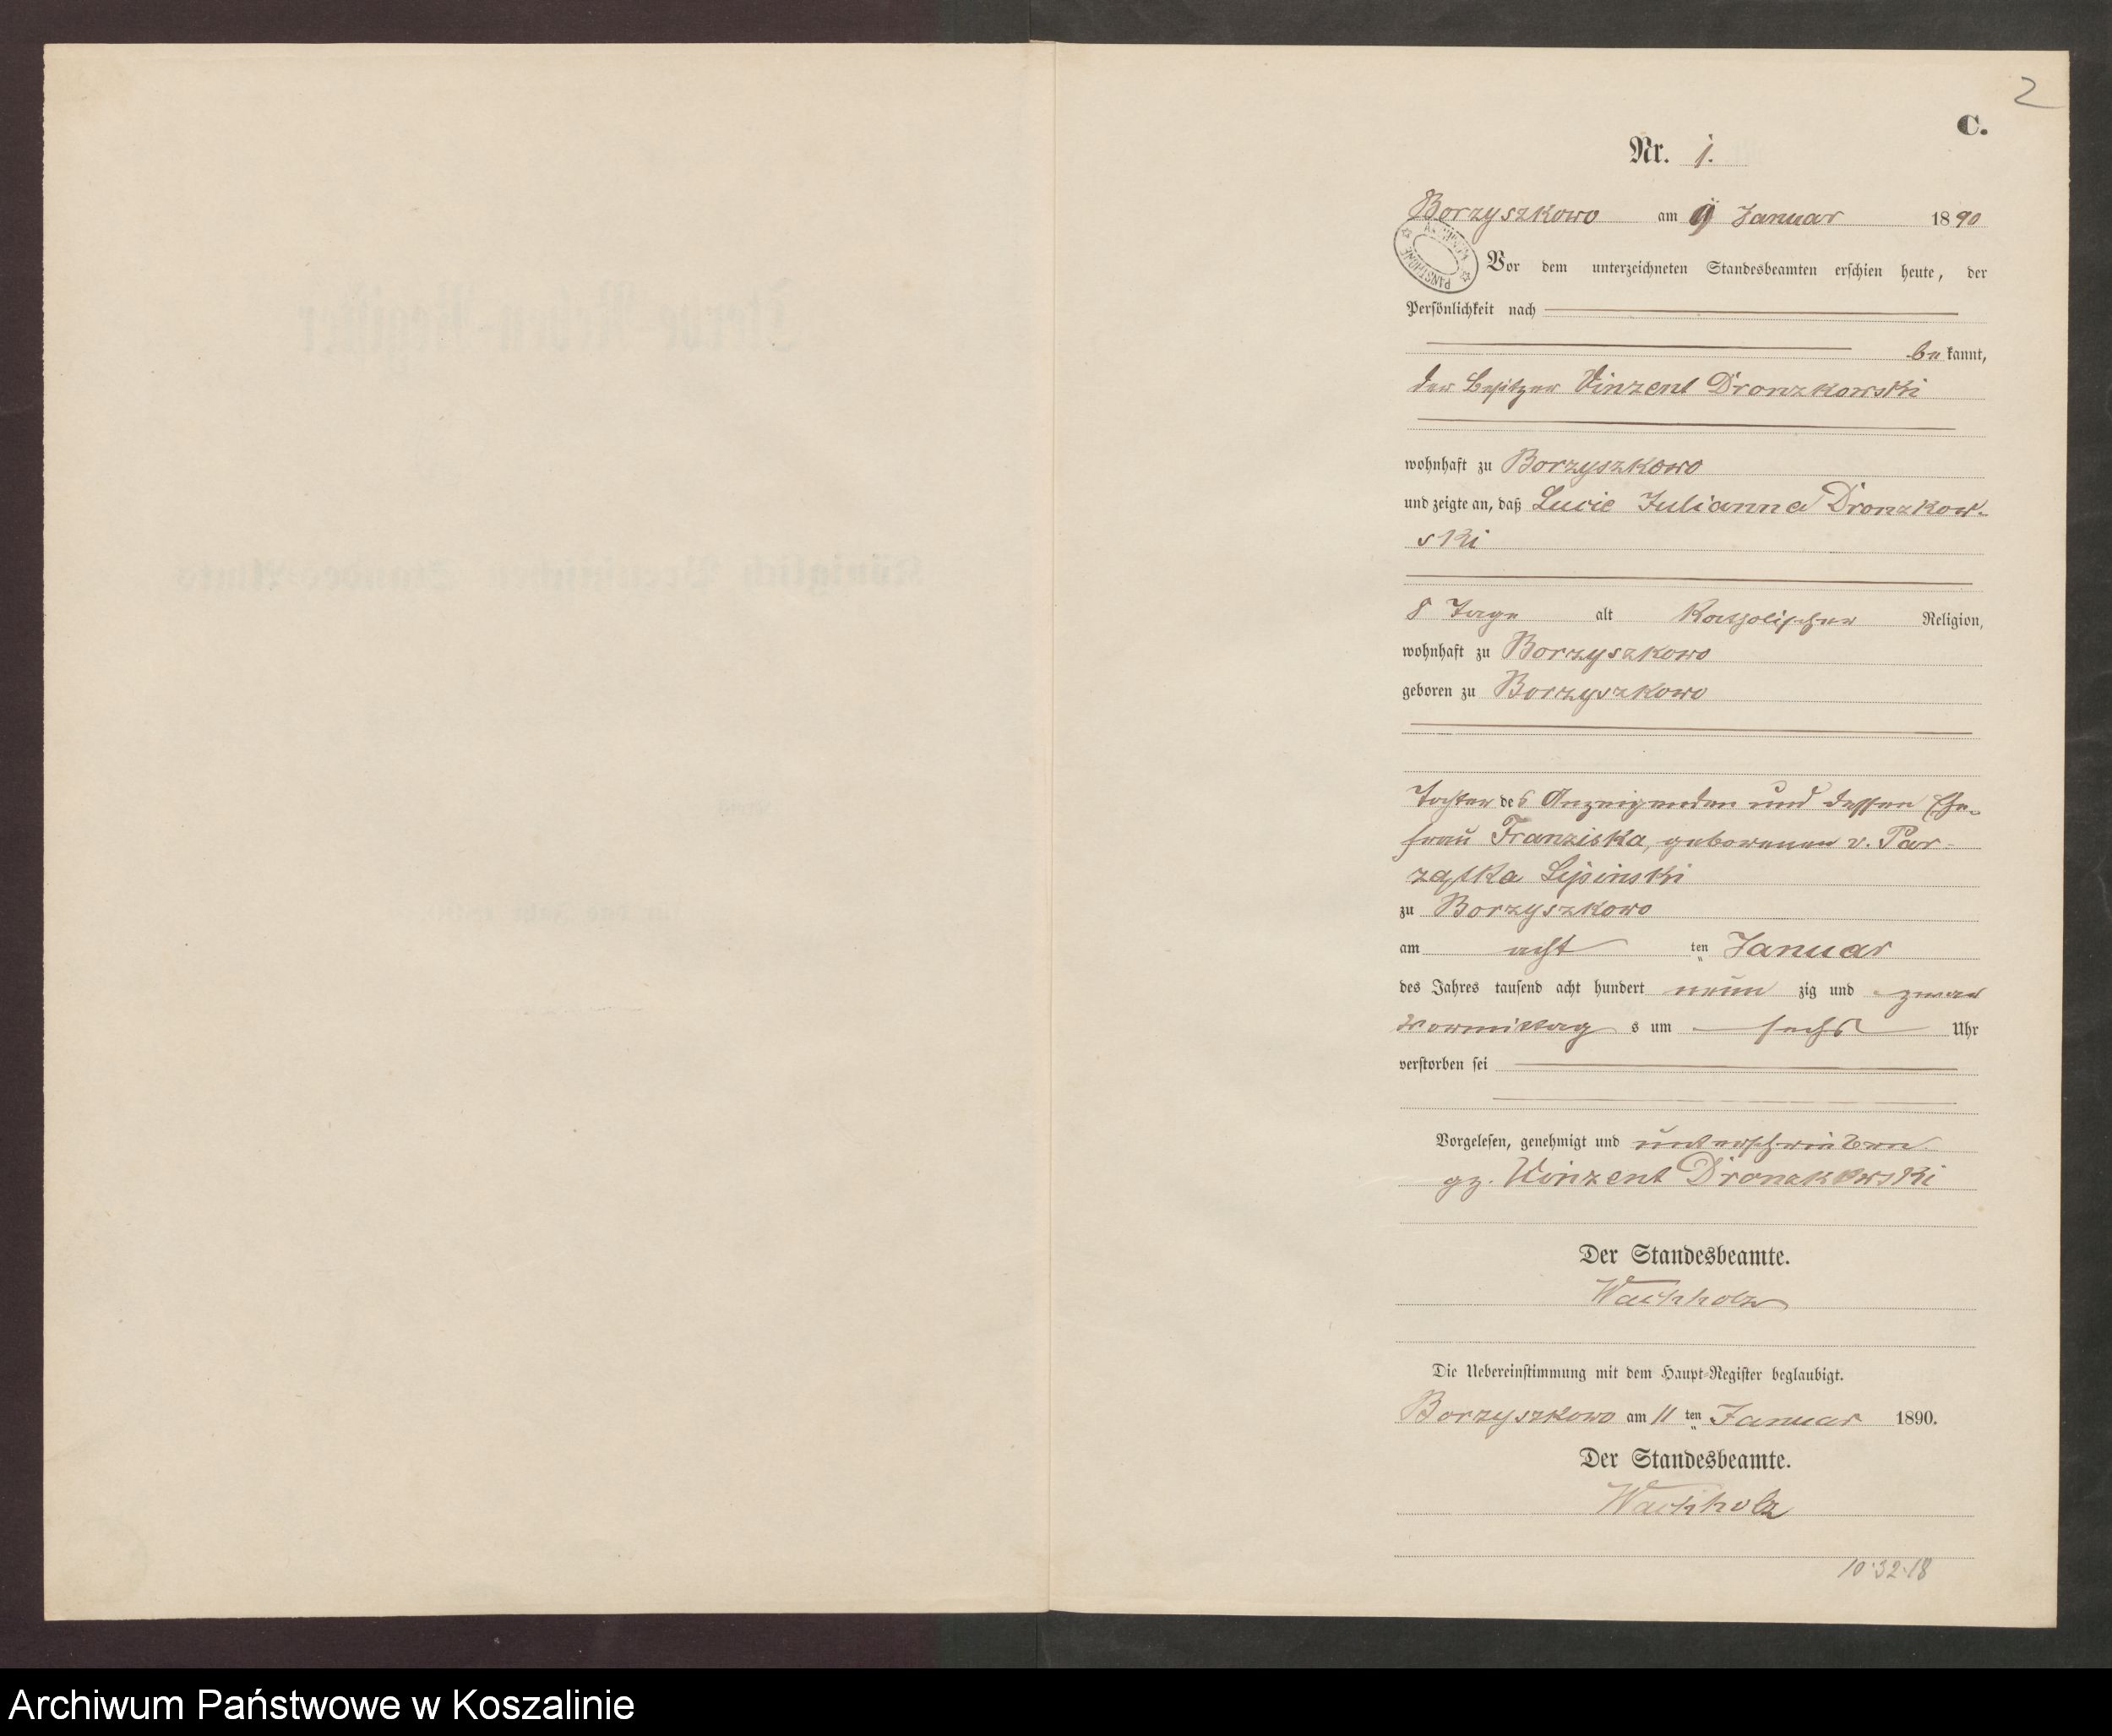 2
C.
Nr. 1.
Borzyszkowo am 9 Januar 1890
ARCHIWUM PAŃSTWOWE
Vor dem unterzeichneten Standesbeamten erschien heute, der
Persönlichkeit nach
be kannt,
der Besitzer Vinzent Dronzkowski
wohnhaft zu Borzyszkowo
und zeigte an, daß Lucie Julianna Dronzkow-
ski
8 Tage alt katholischer Religion,
wohnhaft zu Borzyszkowo
geboren zu Borzyszkowo
Tochter des Anzeigenden und dessen Ehe-
frau Franziska, geborenen v. Par-
zątka Lipinski
zu Borzyszkowo
am acht ten Januar
des Jahres tausend acht hundert neun zig und zwar
Vormittag s um sechs Uhr
verstorben sei
Vorgelesen, genehmigt und unterschrieben
gz. Vinzent Dronzkowski
Der Standesbeamte.
Wachholz
Die Uebereinstimmung mit dem Haupt-Register beglaubigt.
Borzyszkowo am 11 ten Januar 1890.
Der Standesbeamte.
Wachholz
10·32·18
Archiwum Państwowe w Koszalinie